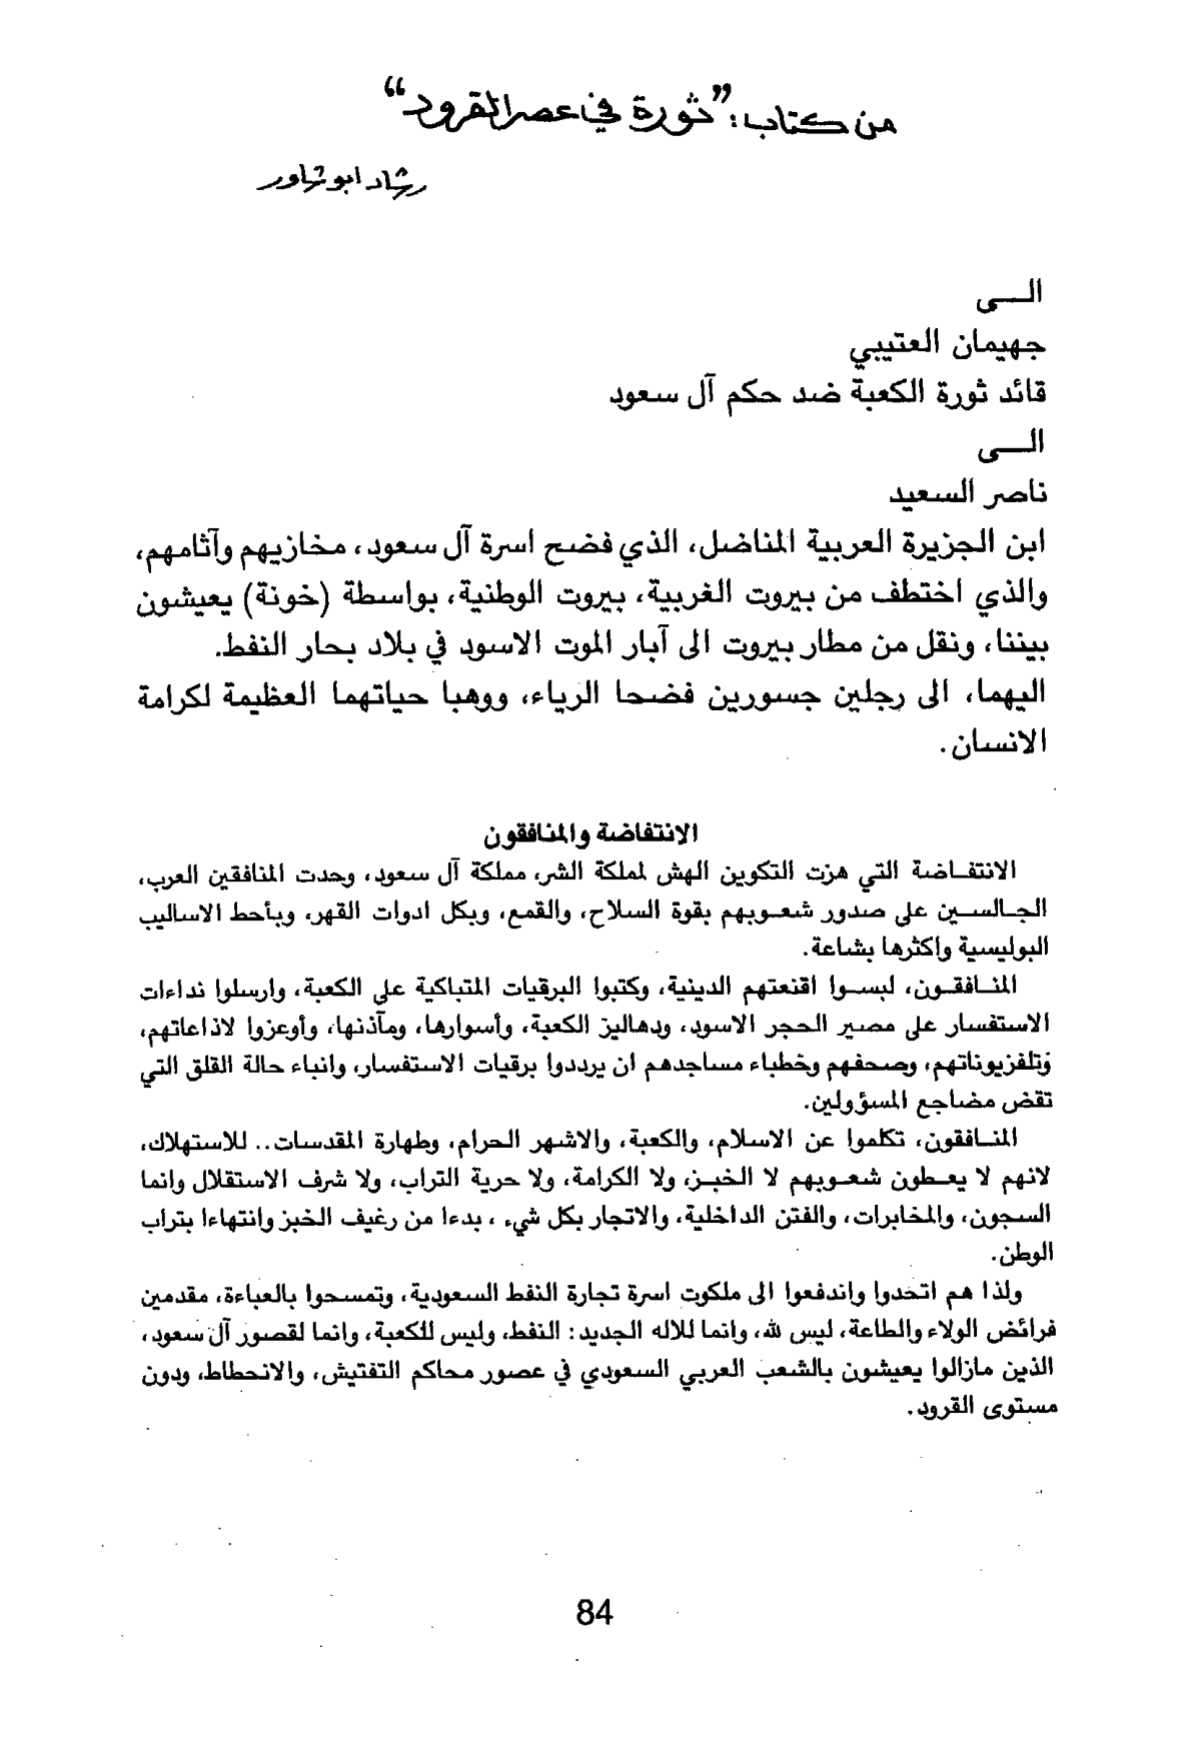 من كتاب: "ثورة في عصر القرود"
رشاد ابو شاور
الــى
جهيمان العتيبي
قائد ثورة الكعبة ضد حكم آل سعود
الــى
ناصر السعيد
ابن الجزيرة العربية المناضل، الذي فضح اسرة آل سعود، مخازيهم وآثامهم،
والذي اختطف من بيروت الغربية، بيروت الوطنية، بواسطة (خونة) يعيشون
بيننا، ونقل من مطار بيروت الى آبار الموت الاسود في بلاد بحار النفط.
اليهما، الى رجلين جسورين فضحا الرياء، ووهبا حياتهما العظيمة لكرامة
الانسان.
الانتفاضة والمنافقون
الانتفـاضة التي هزت التكوين الهش لمملكة الشر، مملكة آل سعود، وحدت المنافقين العرب،
الجـالسـين على صدور شعـوبهم بقوة السلاح، والقمع، وبكل ادوات القهر، وبأحط الاساليب
البوليسية واكثرها بشاعة.
المنـافقـون، لبسـوا اقنعتهم الدينية، وكتبوا البرقيات المتباكية على الكعبة، وارسلوا نداءات
الاستفسار على مصير الحجر الاسود، ودهاليز الكعبة، وأسوارها، ومآذنها، وأوعزوا لاذاعاتهم،
وتلفزيوناتهم، وصحفهم وخطباء مساجدهم ان يرددوا برقيات الاستفسار، وانباء حالة القلق التي
تقض مضاجع المسؤولين.
المنـافقون، تكلموا عن الاسلام، والكعبة، والاشهر الحرام، وطهارة المقدسات.. للاستهلاك،
لانهم لا يعـطون شعـوبهم لا الخبـز، ولا الكرامة، ولا حرية التراب، ولا شرف الاستقلال وانما
السجون، والمخابرات، والفتن الداخلية، والاتجار بكل شيء، بدءا من رغيف الخبز وانتهاءا بتراب
الوطن.
ولذا هم اتحدوا واندفعوا الى ملكوت اسرة تجارة النفط السعودية، وتمسحوا بالعباءة، مقدمين
فرائض الولاء والطاعة، ليس لله، وانما للاله الجديد: النفط، وليس للكعبة، وانما لقصور آل سعود،
الذين مازالوا يعيشون بالشعب العربي السعودي في عصور محاكم التفتيش، والانحطاط، ودون
مستوى القرود.
84